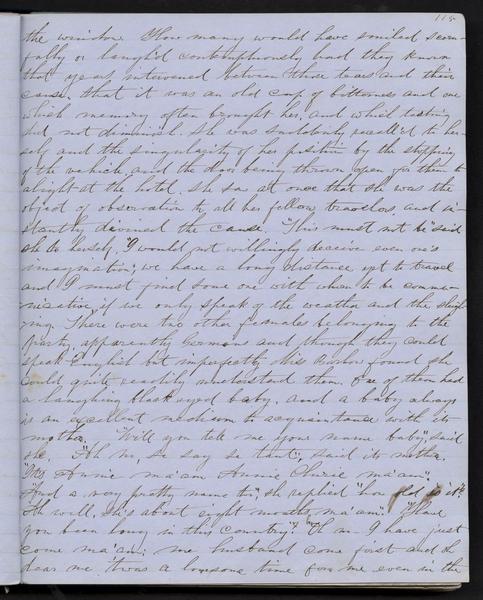 115
the window. How many would have smiled scorn-
fully or laugh'd contemptuously had they known
that years intervened between those tears and their
cause, that it was an old cup of bitterness and one
which memory often brought her, and which tasting
did not diminish. She was suddenly recall'd to her-
self and the singularity of her position by the stopping
of the vehicle, and the door being thrown open for them to
alight at the hotel. She saw at once that she was the
object of observation to all her fellow travelers and in-
stantly divined the cause. "This must not be" said
she to herself, "I would not willingly deceive even one's
imagination, we have a long distance yet to travel
and I must find some one with whom to be commu-
nicative, if we only speak of the weather and the sleigh-
ing. There were two other females belonging to the
party, apparently Germans and though they could
speak English but imperfectly Miss found she
could quite readily understand them. One of them had
a laughing black eyed baby, and a baby always
is an excellent medium to acquaintance with its
mother. "Will you tell me your name baby", said
she. said its mother.
Annie ma'am Annie ma'am".
"And a very pretty name too", she replied "how old is it"?
well, she's about eight months, ma'am". "Have
you been long in this country"? I have just
come ma'am; me husband come first and
dear me 'twas a lonesome time for me even in the